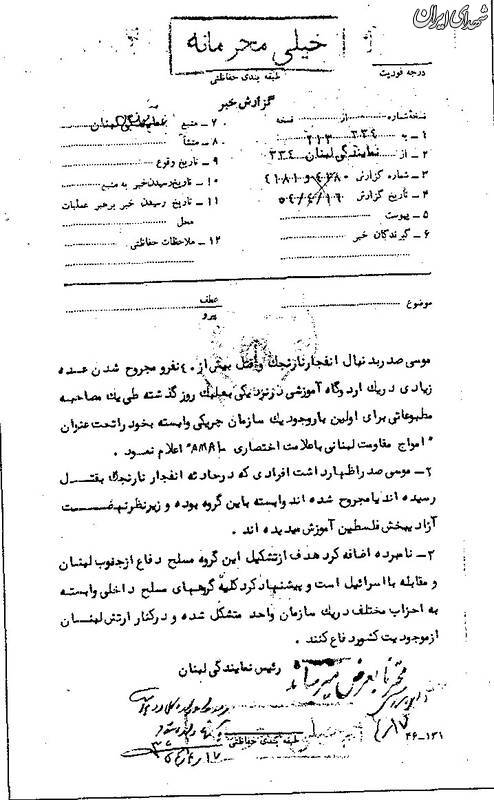 شهدای ایران
خیلی محرمانه
طبقه بندی حفاظتی
درجه فوریت
گزارش خبر
نسخه شماره از نسخه
۱ – به ۳۳۴ ۲۱۳
۲ – از نمایندگی لبنان ۳۳۴
۳ – شماره گزارش ۴۳۸۰ و ۴۱۸۱
۴ – تاریخ گزارش ۵۴/۴/۱۶
۵ – پیوست
۶ – گیرندگان خبر
۷ – منبع نمایندگی لبنان
۸ – منشأ
۹ – تاریخ وقوع
۱۰ – تاریخ رسیدن خبر به منبع
۱۱ – تاریخ رسیدن خبر برهبر عملیات
محل
۱۲ – ملاحظات حفاظتی
موضوع
عطف
پیرو
موسی صدر بدنبال انفجار نارنجک و قتل بیش از ۴۰ نفر و مجروح شدن عده
زیادی در یک اردوگاه آموزشی در نزدیکی بعلبک روز گذشته طی یک مصاحبه
مطبوعاتی برای اولین بار وجود یک سازمان چریکی وابسته بخود را تحت عنوان
"امواج مقاومت لبنانی با علامت اختصاری AMAL" اعلام نمود .
۲ – موسی صدر اظهار داشت افرادی که در حادثه انفجار نارنجک بقتل
رسیده اند یا مجروح شده اند وابسته باین گروه بوده و زیر نظر نهضت
آزادیبخش فلسطین آموزش میدیده اند .
۳ – نامبرده اضافه کرد هدف از تشکیل این گروه مسلح دفاع از جنوب لبنان
و مقابله با اسرائیل است و پیشنهاد کرد کلیه گروههای مسلح داخلی وابسته
به احزاب مختلف در یک سازمان واحد متشکل شده و در کنار ارتش لبنان
از موجودیت کشور دفاع کنند .
رئیس نمایندگی لبنان
محترما بعرض میرساند
طبقه بندی حفاظتی
۴۶-۱۳۱